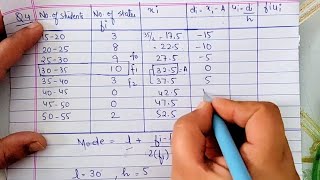 Q4 No of students No of states fi xi di = xi - A ui = di/h fiui
15-20 3 35/2 = 17.5 -15
20-25 8 22.5 -10
25-30 9 f0 27.5 -5
30-35 10 f1 32.5 = A 0
35-40 3 f2 37.5 5
40-45 0 42.5
45-50 0 47.5
50-55 2 52.5
Mode = l + f1 -
2(f1)
l = 30, h = 5